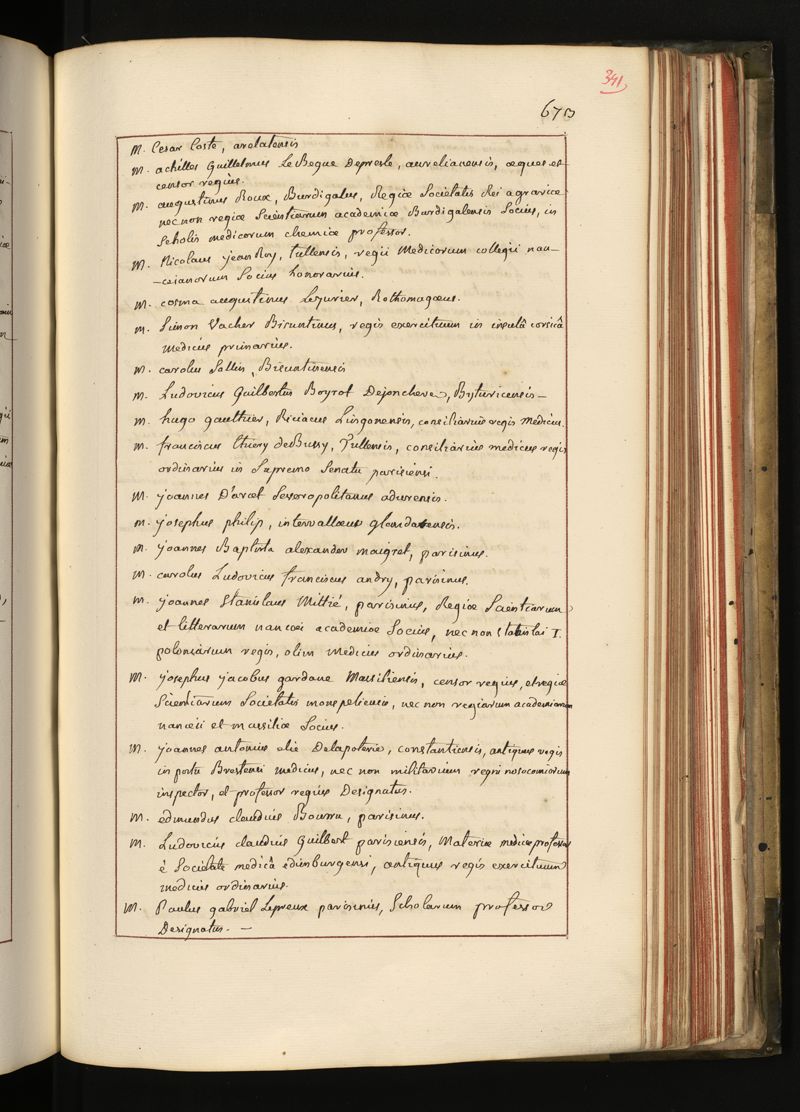 341
673
M. Cesar Coste, arelatensis
M. achilles Guillelmus Le Begue Depresle, aurelianensis, æques et
censor regius.
M. augustinus Roux, Burdigalus, Regiæ Societatis Rei agrariæ
nec non regiæ Scientiarum academiæ Burdigalensis Socius, in
Scholis medicorum chemiæ professor.
M. Nicolaus jean Roy, tullensis, regii Medicorum collegii nan-
-ceianorum Socius honorarius.
M. cosma augustinus Lezurier, Rothomagæus.
M. Simon Vacher Bisuntinus, regis exercituum in insulâ corsicâ
Medicus primarius.
M. carolus Sallin,
M. Ludovicus Guilbertus Boyrot Dejoncheres, Byturicensis -
M. hugo gaulthier, Riciacus Lingonensis, consiliarius regis Medicus.
M. franciscus thiery de Bussy, Tullensis, consiliarius medicus regis
ordinarius in Supremo Senatu parisiensi.
M. joannes D'arcet Severopolitanus adurensis.
M. josephus philip, intervallæus glandatensis.
M. joannes Baptista alexander maigret, parisinus.
M. carolus Ludovicus franciscus andry, parisinus.
M. joannes Stanislaus Mittié, parisinus, Regiæ Scientiarum
et litterarum nancei academiæ Socius, nec non stanislai I.
poloniarum regis, olim medicus ordinarius.
M. josephus jacobus gardane Massiliensis, censor regius, et regiæ
Scientiarum Societatis monspeliensis, nec non regiarum academiarum
nanceii et massiliæ Socius.
M. joannes antonius elie Delapoterie, constantiensis, antiquus regis
in portu Brestensi medicus, nec non militarium regni nosocomiorum
inspector, et professor regius Designatus.
M. edmundus claudius Bourru, parisinus.
M. Ludovicus claudius Guilbert parisiensis, Materiæ medicæ professor
è Societate medicâ edimburgensi, antiquus regis exercituum
medicus ordinarius.
M. Paulus gabriel Lepreux parisinus, Scholarum professor
Designatus. -